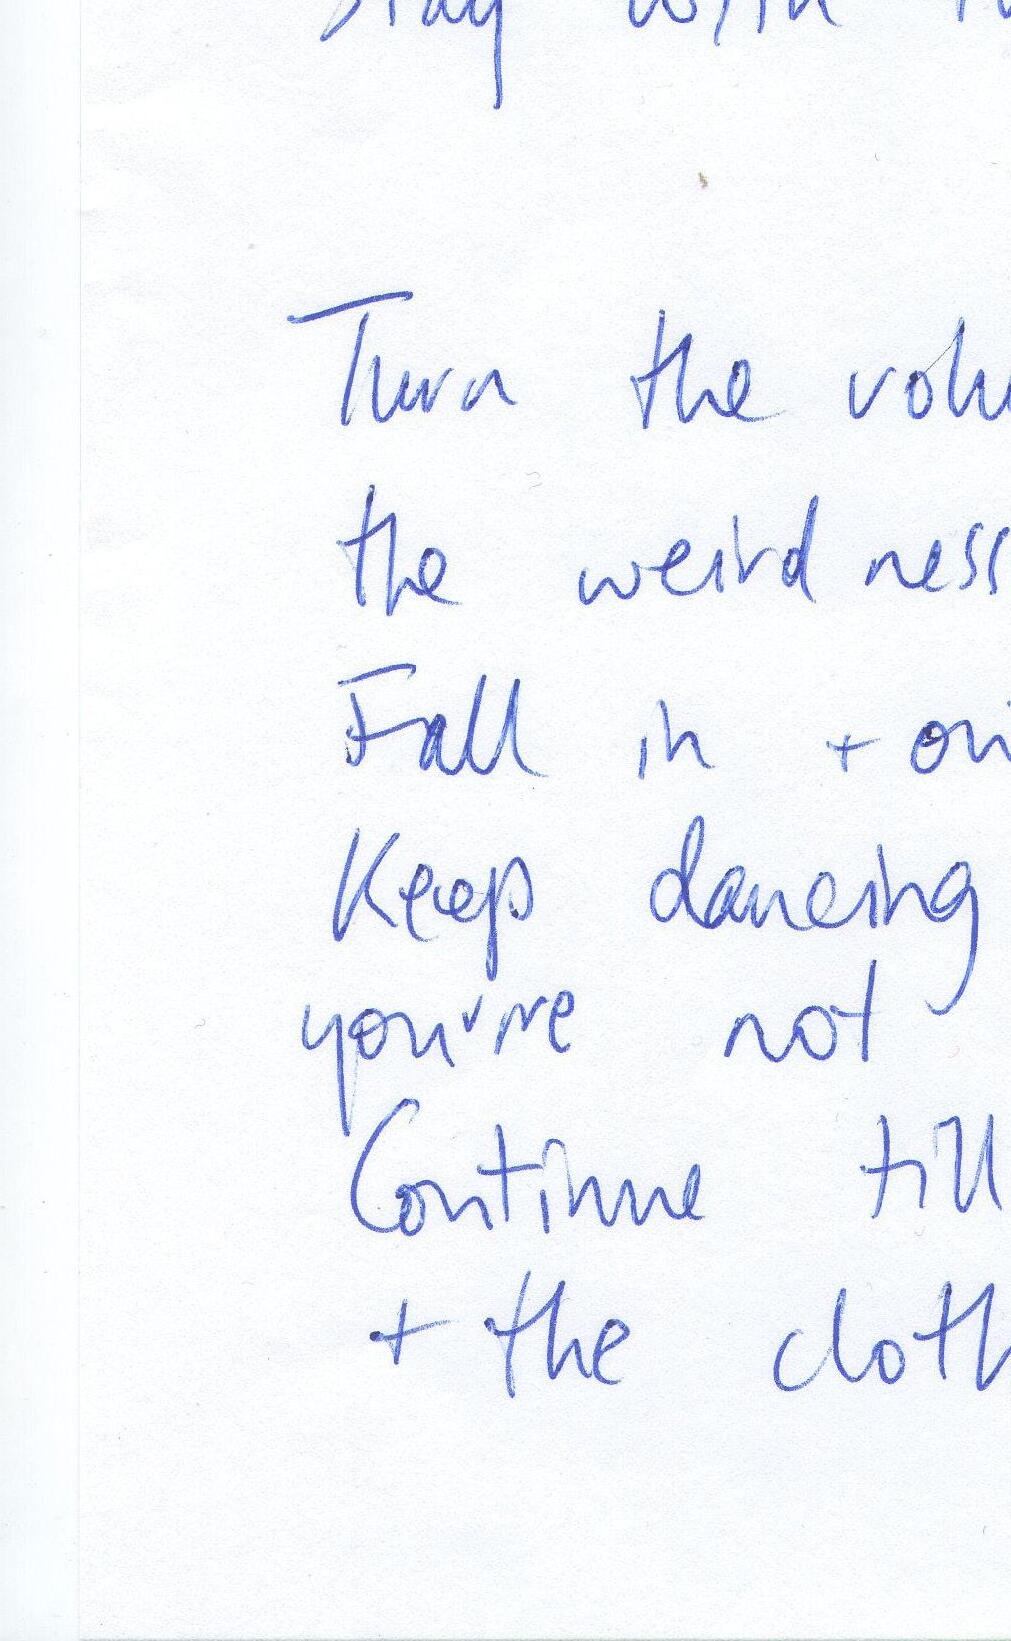 stay with
Turn the volu
the weirdness
Fall in + ou
Keep dancing
you're not
Continue till
+ the cloth